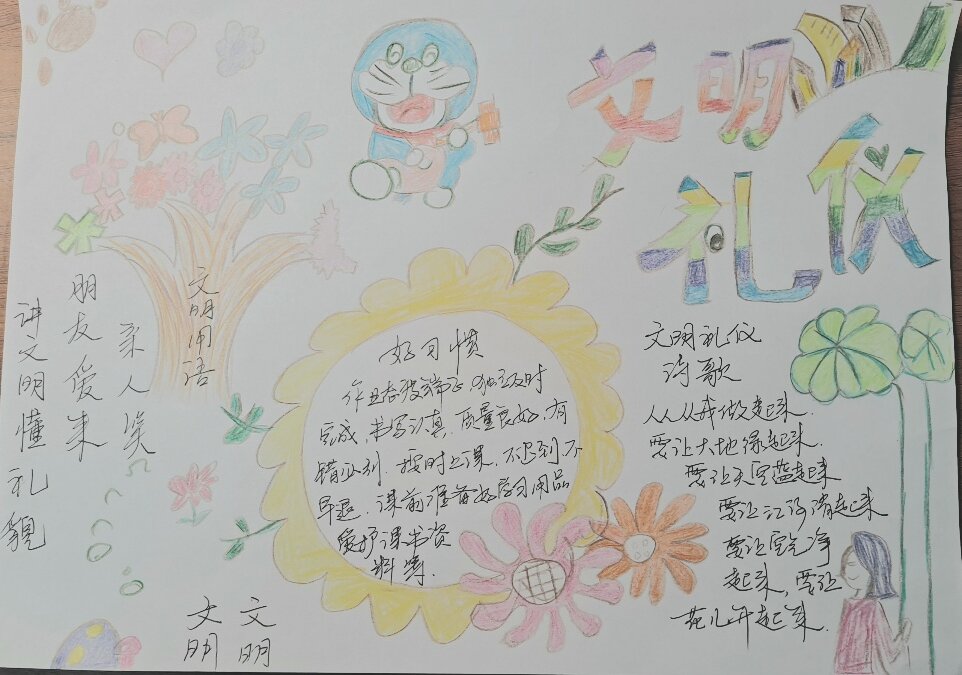 文明
礼仪
文明用语
亲人笑
朋友爱来
讲文明懂礼貌
文明
文明
好习惯
作业态度端正。独立及时
完成,书写认真,质量良好,有
错必纠。按时上课,不迟到不
早退。课前准备好学习用品
爱护课书资
料等.
文明礼仪
诗歌
人人从我做起来.
要让大地绿起来.
要让天空蓝起来
要让江河清起来
要让空气净
起来,要让
花儿开起来.